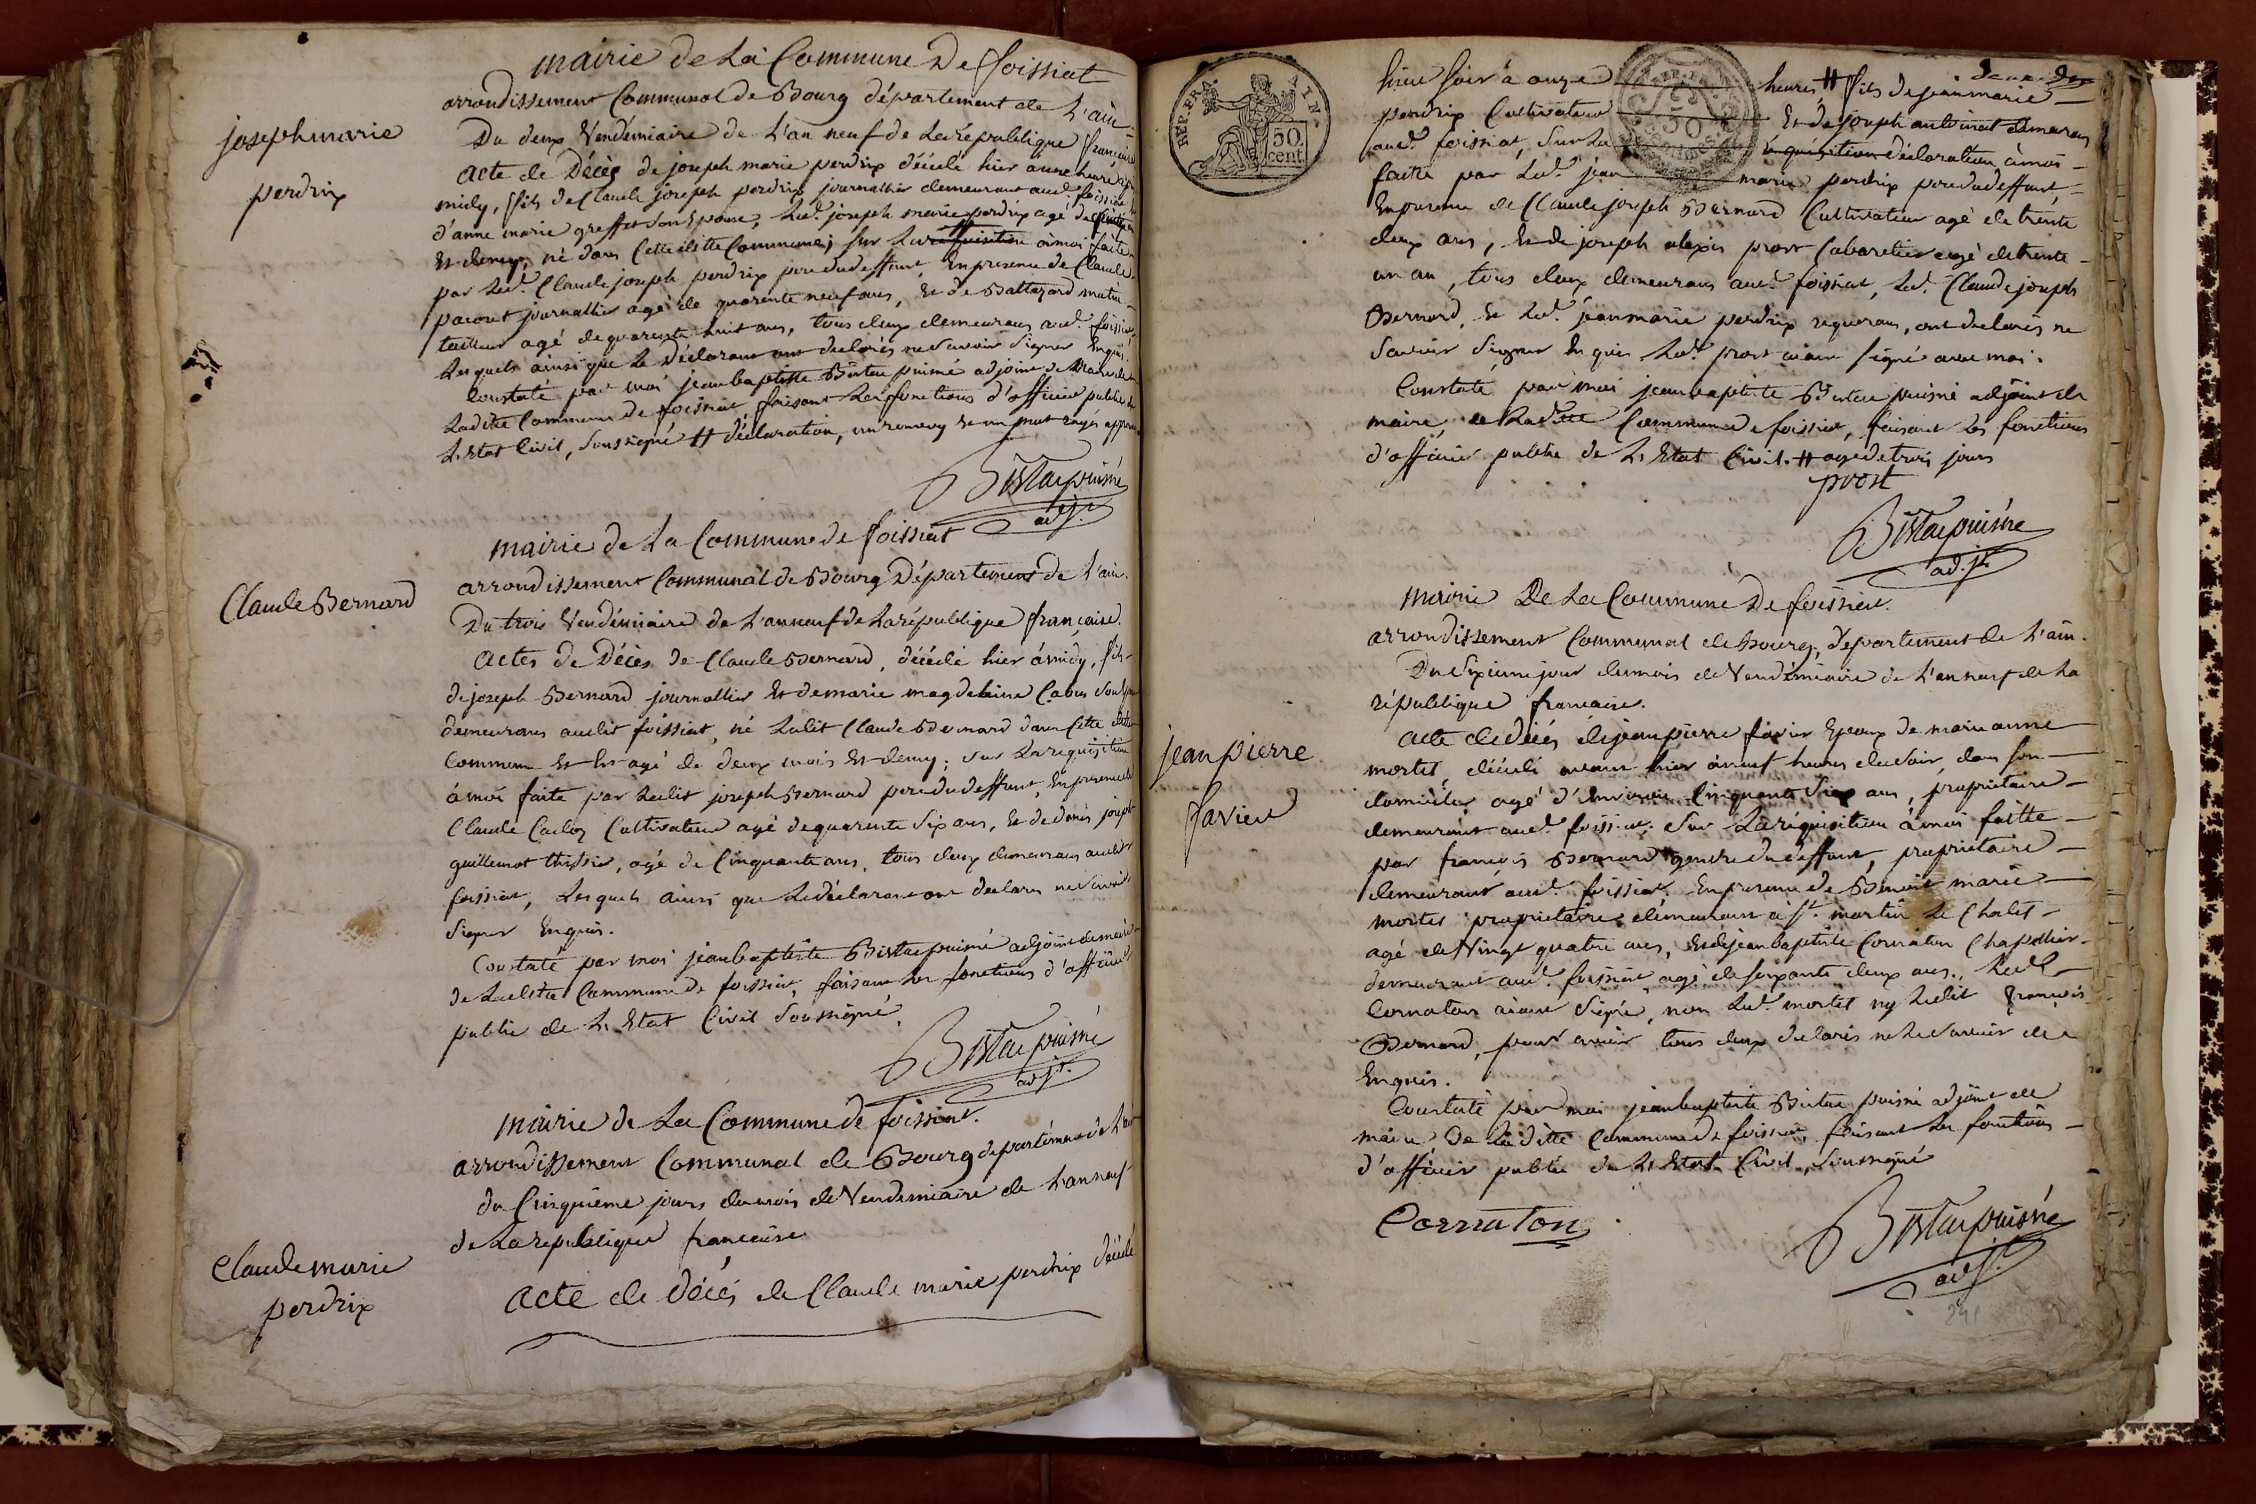 mairie de La Commune De foissiat
arrondissement Communal de Bourg département de L'ain
Du deux Vendémiaire de L'an neuf de La république française
joseph marie
perdrix
Acte de Décès de joseph marie perdrix décédé hier à une heure
midy, fils de Claude joseph perdrix journallier demeurant aud. foissiat
d'anne marie greffet son Epouse, Led. joseph marie perdrix agé de
Et demy, né dans Cette ditte Commune; sur La réquisition à moi faite
par Led. Claude joseph perdrix pere du deffunt, En presence de Claude
pacout journallier agé de quarente neuf ans, Et de Baltazard
tailleur agé de quarente huit ans, tous deux demeurans aud. foissiat
Lesquels ainsi que Le Déclarant ont declarés ne Savoir Signer Enquis.
Constaté par moi jean baptiste Bistac puisné adjoint de Maire de
Ladite Commune de foissiat, faisant Les fonctions d'officier public de
L'Etat Civil, Soussigné # déclaration, un renvoy et un mot rayés
Bistac puisné
adj.t
mairie de La Commune de foissiat
arrondissement Communal de Bourg Département de L'ain.
Claude Bernard
Du trois Vendémiaire de L'an neuf de La république française.
Actes de Décès de Claude Bernard, décédé hier à midy, fils
de joseph Bernard journallier Et de marie magdeleine
demeurans audit foissiat, né Ledit Claude Bernard dans Cette ditte
Commune Et agé de deux mois Et demy; sur La requisition
à moi faite par Ledit joseph Bernard pere du deffunt, En presence de
Claude Cultivateur agé de quarente Six ans, Et de Denis joseph
guillemot, agé de Cinquante ans, tous deux demeurans audit
foissiat, Lesquels ainsi que Le déclarant ont declarés ne Savoir
Signer Enquis.
Constaté par moi jean baptiste Bistac puisné adjoint de maire
de Laditte Commune de foissiat, faisant Les fonctions d'officier
public de L'Etat Civil Soussigné.
Bistac puisné
adj.t
mairie de La Commune de foissiat.
arrondissement Communal de Bourg département de L'ain
du Cinquième jours du mois de Vendemiaire de L'an neuf
de La république francaise
Claude marie
perdrix
Acte de décés de Claude marie perdrix décédé
REP. FRA.
AIN.
50
cent.
hier soir à onze heures # fils de jean marie
perdrix Cultivateur Et de joseph demeurans
aud. foissiat, Sur La réquisition déclaration à moi
faite par Led. jean marie perdrix pere du deffunt
En presence de Claude joseph Bernard Cultivateur agé de trente
deux ans, Et de joseph alexis prost Cabaretier agé de trente
un an, tous deux demeurans aud. foissiat, Led. Claude joseph
Bernard, Et Led. jean marie perdrix requerans, ont declarés ne
Savoir Signer Enquis Led. prost aiant signé avec moi.
Constaté par moi jean baptiste Bistac puisné adjoint de
maire de Laditte Commune de foissiat, faisant Les fonctions
d'officier public de L'Etat Civil. # agé de trois jours
prost
Bistac puisné
adj.t
mairie De La Commune De foissiat.
arrondissement Communal de Bourg, departement de L'ain.
Du Sixieme jour du mois de Vendémiaire de L'an neuf de La
république francaise.
jean pierre
favier
Acte de décés de jean pierre favier Epoux de marie anne
mortet, décédé avant hier à neuf heures du soir, dans son
domicile, agé d'environ Cinquante Six ans, propriétaire
demeurant aud. foissiat. Sur La réquisition à moi faitte
par françois Bernard gendre du deffunt, propriétaire
demeurant aud. foissiat, En presence de Benoit marie
mortet propriétaire demeurant à St. martin Le Chatel
agé de Vingt quatre ans, Et de jean baptiste Cornaton Chapellier
demeurant aud. foissiat agé de soixante deux ans, Led.
Cornaton aiant Signé, non Led. mortet ny Ledit françois
Bernard, pour avoir tous deux declarés ne Le Savoir de ce
Enquis.
Constaté par moi jean baptiste Bistac puisné adjoint de
maire De La ditte Commune de foissiat, faisant Les fonctions
d'officier public de L'Etat Civil, Soussigné
Cornaton
Bistac puisné
adj.t